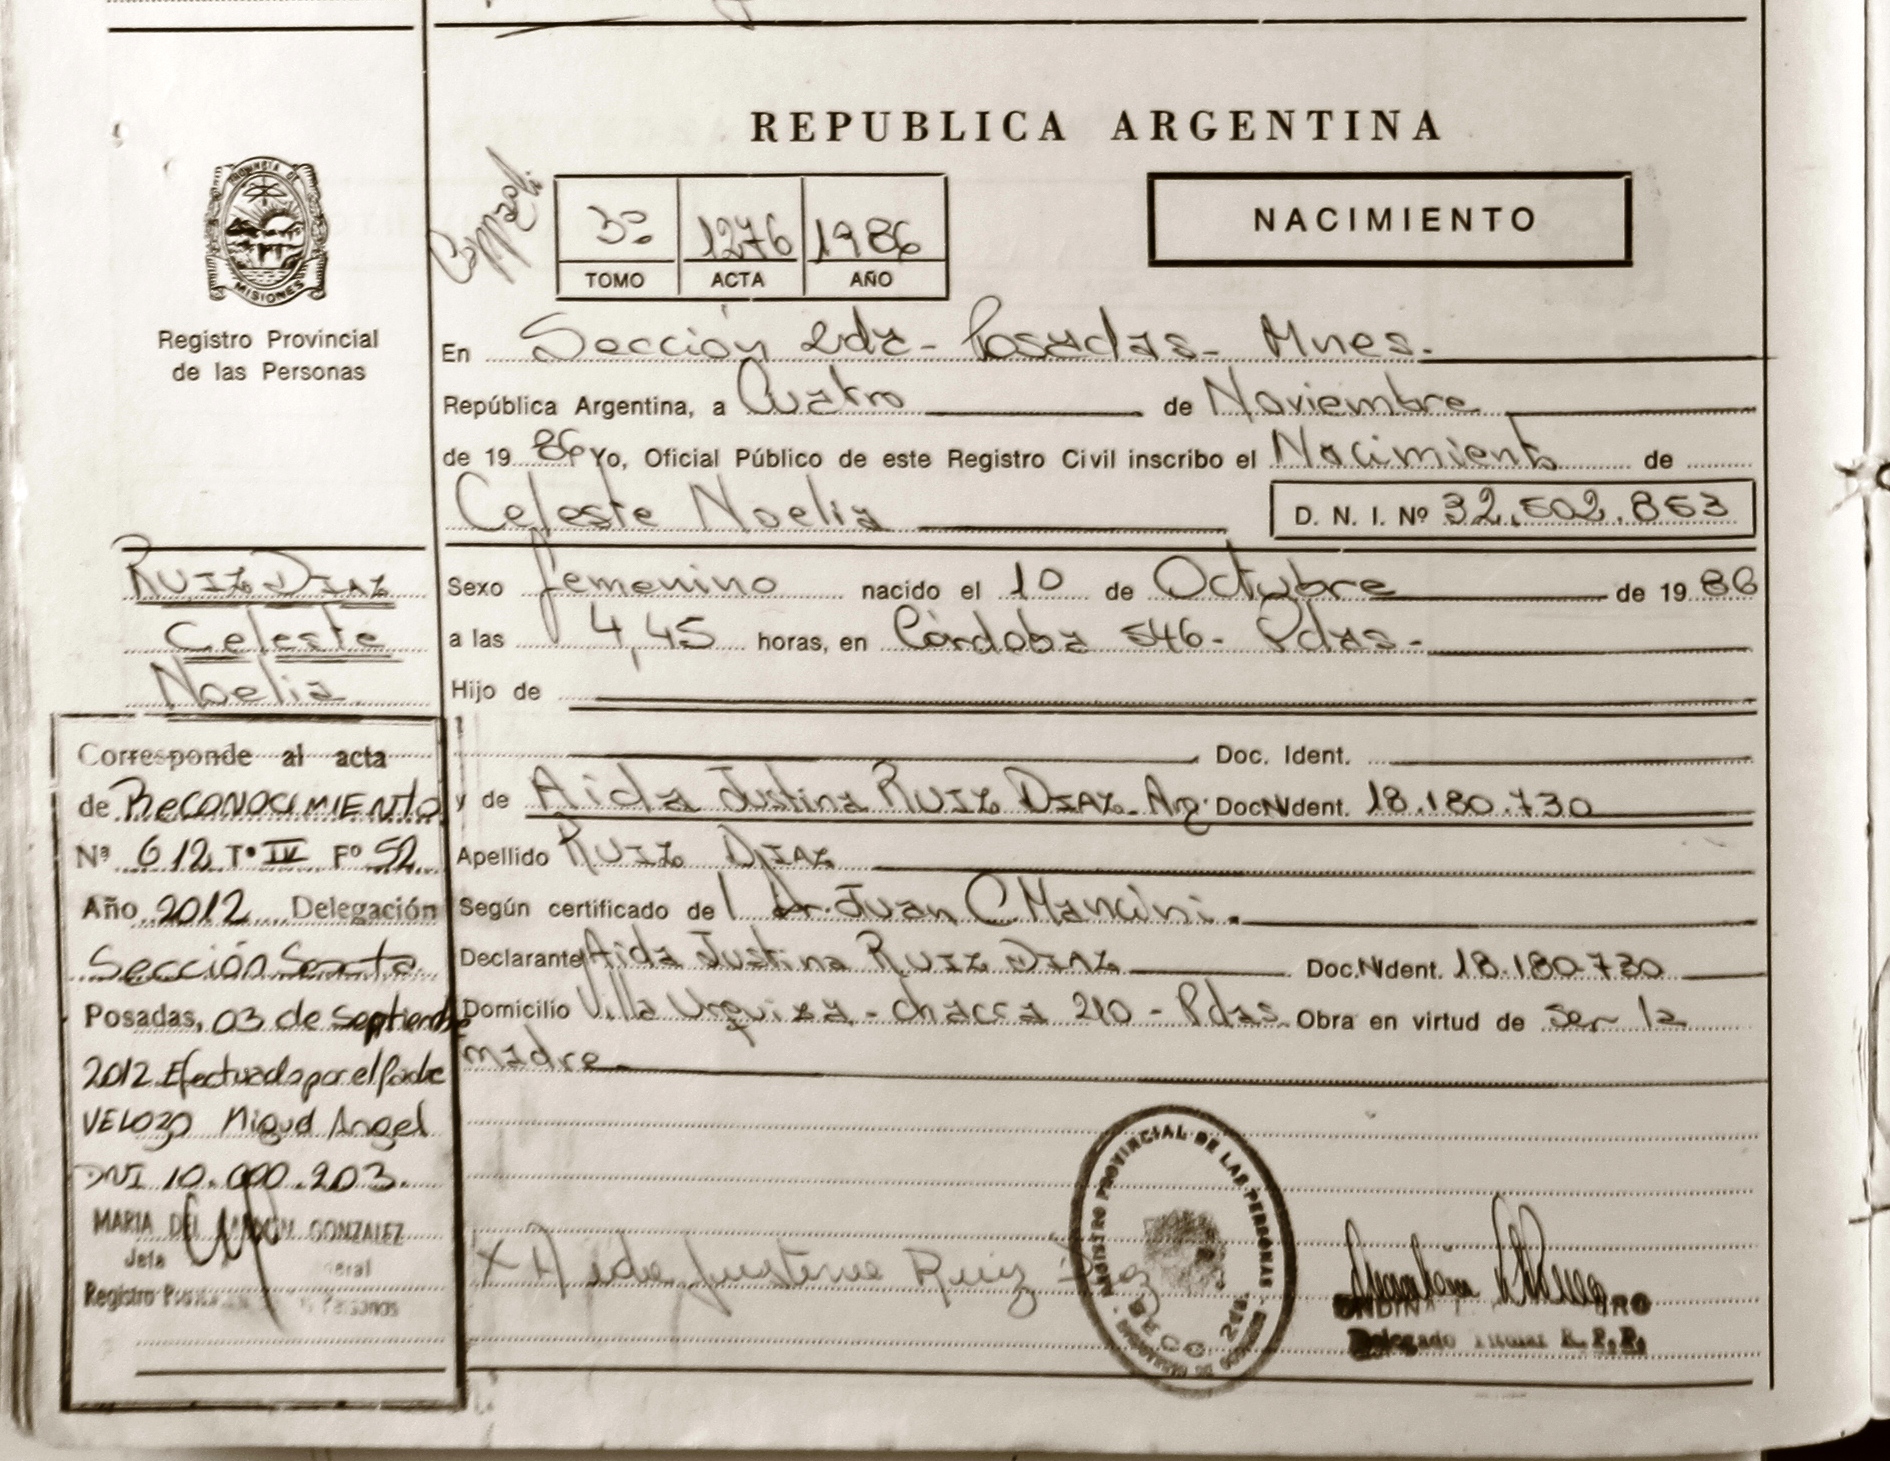 REPUBLICA ARGENTINA
NACIMIENTO
3º 1276 1986
TOMO ACTA AÑO
PROVINCIA DE
MISIONES
Registro Provincial
de las Personas
En Sección 2da - Posadas - Mnes.
República Argentina, a Cuatro de Noviembre
de 19 86 Yo, Oficial Público de este Registro Civil inscribo el Nacimiento de
Celeste Noelia D. N. I. Nº 32.502.853
RUIZ DIAZ
Celeste
Noelia
Sexo femenino nacido el 10 de Octubre de 19 86
a las 4,45 horas, en Córdoba 546 - Pdas -
Hijo de
Doc. Ident.
y de Aida Justina RUIZ DIAZ - Arg. Doc. N Ident. 18.180.730
Apellido RUIZ DIAZ
Según certificado de Dr. Juan C. Mancini.
Declarante Aida Justina RUIZ DIAZ Doc. N Ident. 18.180.730
Domicilio Villa Urquiza - chacra 210 - Pdas. Obra en virtud de ser la
madre
Corresponde al acta
de RECONOCIMIENTO
Nº 612 Tº IV Fº 52
Año 2012 Delegación
Sección Sexta
Posadas, 03 de Septiembre
2012 Efectuado por el padre
VELOZO Miguel Angel
DNI 10.000.203.
MARIA DEL CARMEN GONZALEZ
Jefa
Registro Personas
X Aida Justina Ruiz Diaz
REGISTRO PROVINCIAL DE LAS PERSONAS
SECC. 2da.
Delegado Titular R. P. P.